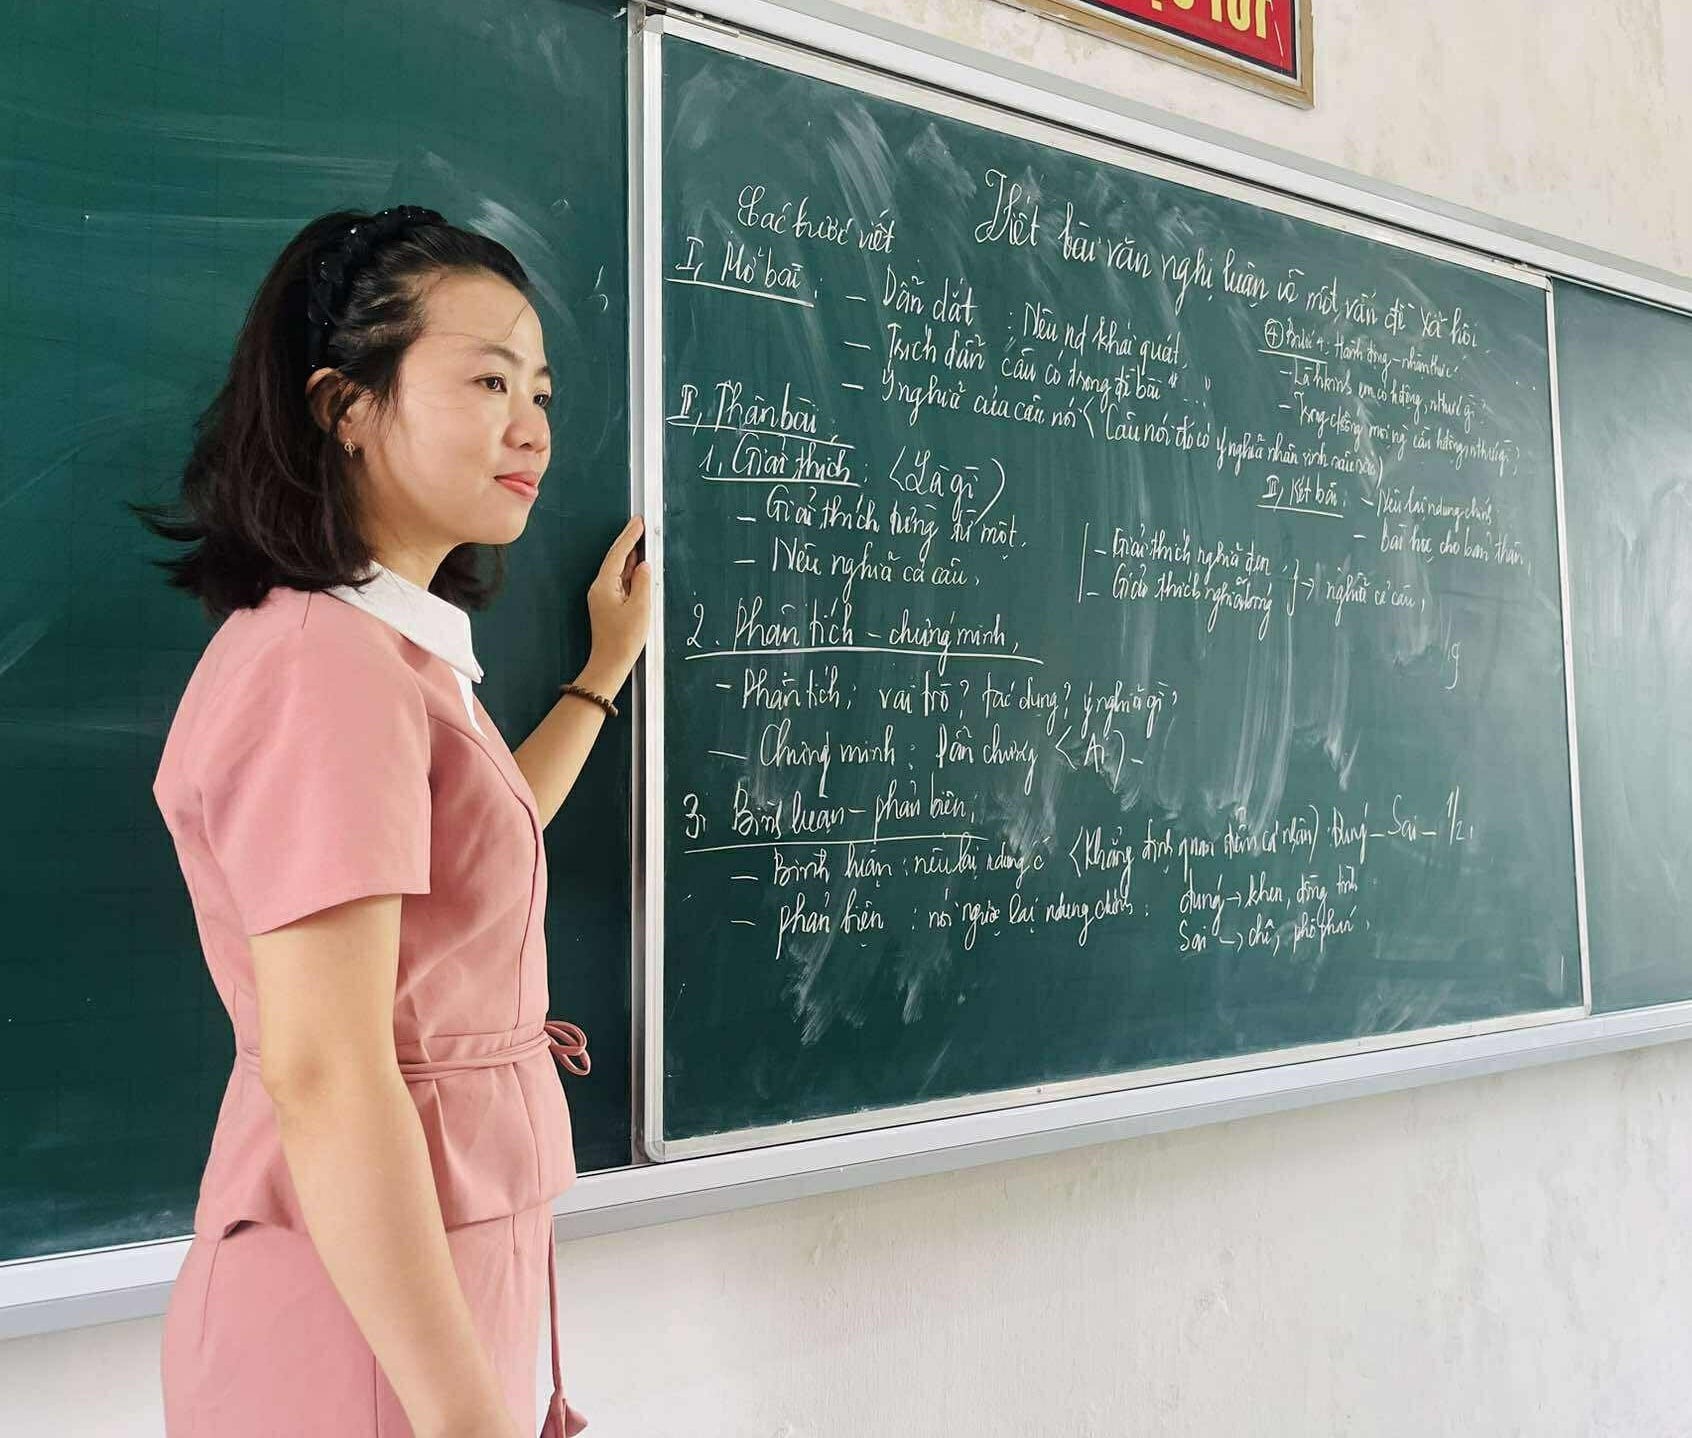 TỐT
Viết bài văn nghị luận về một vấn đề xã hội.
Các bước viết
I, Mở bài: – Dẫn dắt : Nêu nd khái quát
– Trích dẫn câu có trong đề bài "..."
– Ý nghĩa của câu nói (Câu nói đó có ý nghĩa nhân sinh
II, Thân bài:
1, Giải thích: (Là gì)
– Giải thích từng từ một.
– Nêu nghĩa cả câu.
– Giải thích nghĩa đen
– Giải thích nghĩa bóng } → nghĩa cả câu.
2. Phân tích – chứng minh.
– Phân tích: vai trò? tác dụng? ý nghĩa gì?
– Chứng minh: Dẫn chứng (Ai) –
3, Bình luận – phản biện.
– Bình luận: nêu lại ndung c (Khẳng định quan điểm cá nhân). Đúng – Sai – 1/2.
– Phản biện: nói ngược lại ndung chính: đúng → khen, đồng tình
Sai → chê, phê phán.
④ Bước 4: Hành động – nhận thức:
– Là hsinh em có hđộng, nthức gì?
– Trong cộng mọi ng cần hđộng nthức gì?
III, Kết bài: – Nêu lại ndung chính
– Bài học cho bản thân.